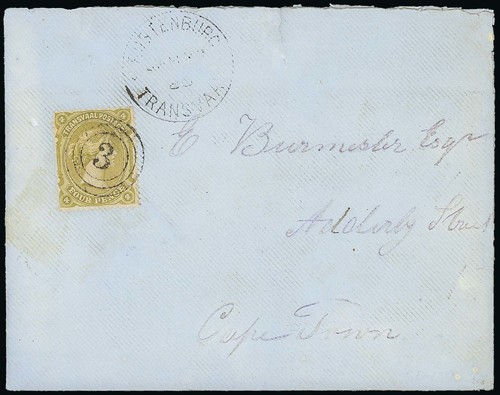 RUSTENBURG
TRANSVAAL
TRANSVAAL POSTAGE
3
FOUR PENCE
4 4
E Burmester Esqr
Adderly Street
Cape Town